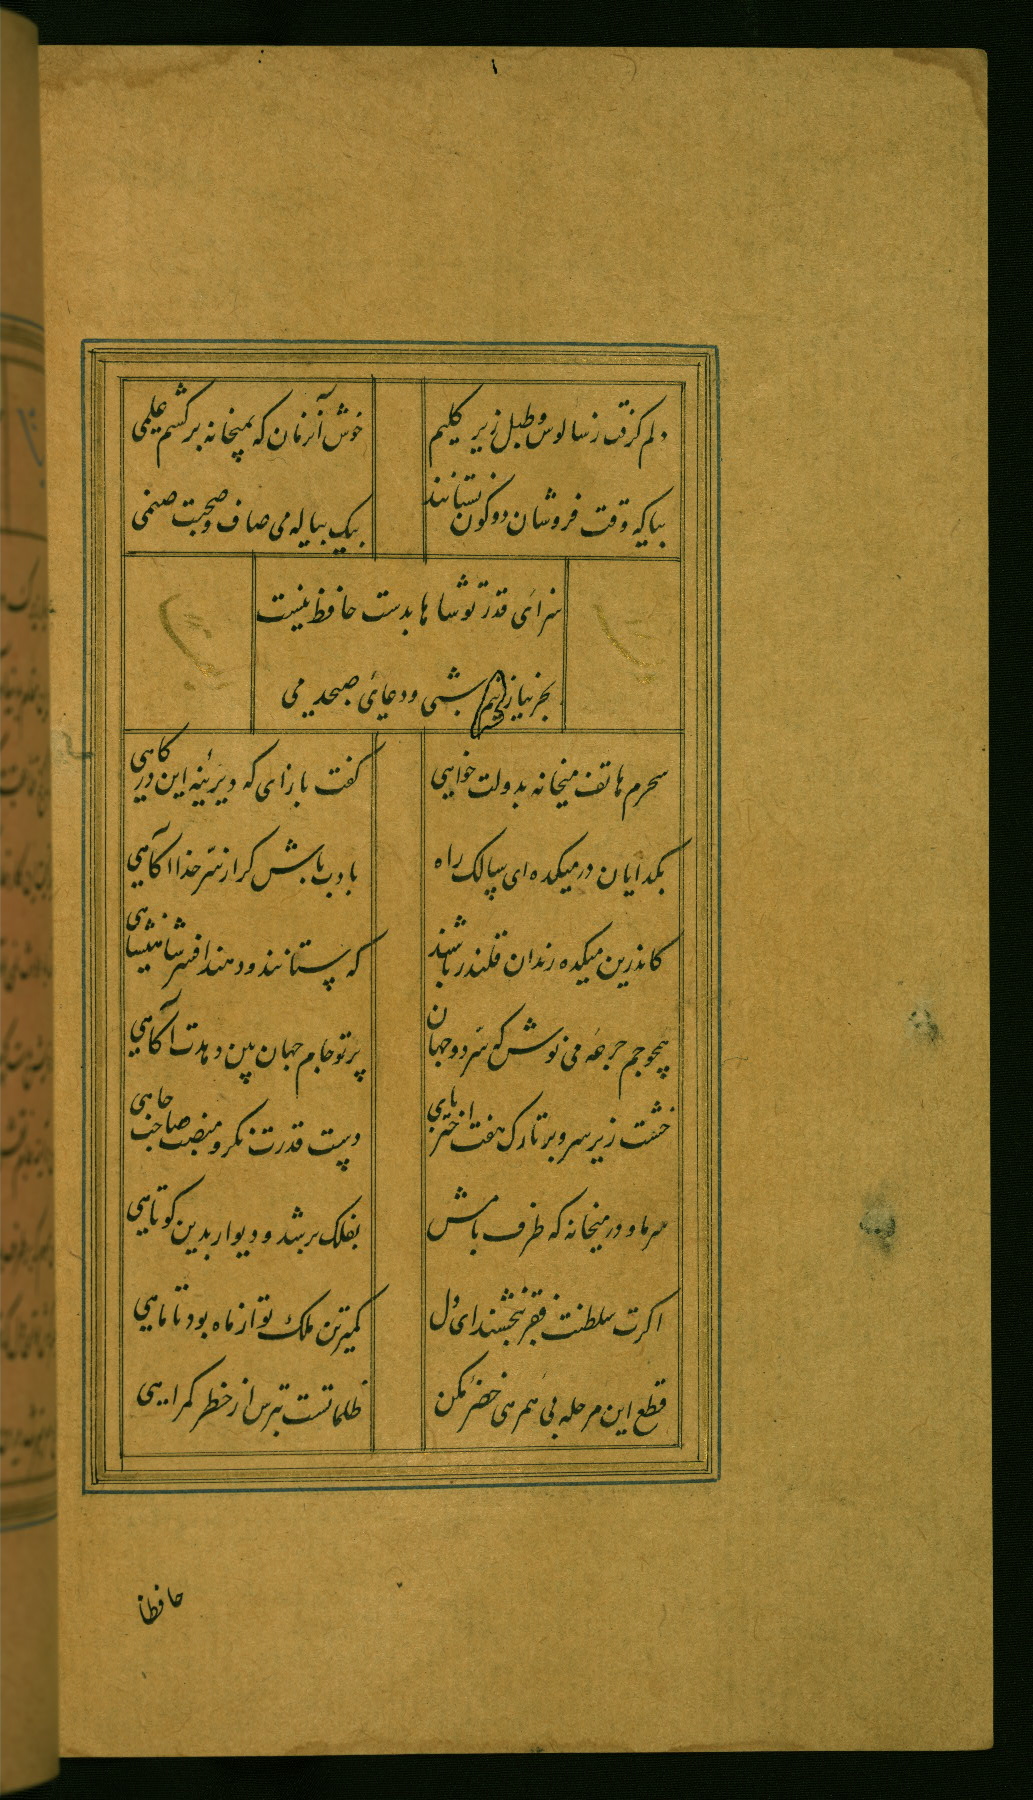 دلم گرفت ز سالوس و طبل زیر گلیم
خوش آنزمان که بمیخانه بر کشم علمی
بیا که وقت فروشان دو کون نستانند
بیک پیاله می صاف و صحبت صنمی
سزای قدر تو شاها بدست حافظ نیست
بجز نیاز شبی و دعای صبحدمی
سحرم هاتف میخانه بدولت خواهی
گفت بازای که دیرینه این درگاهی
بگدایان در میکده ای سالک راه
بادب باش گر از سر خدا آگاهی
کاندرین میکده رندان قلندر باشند
که ستانند و دهند افسر شاهنشاهی
همچو جم جرعه می نوش که سر دو جهان
پرتو جام جهان بین دهدت آگاهی
خشت زیر سر و بر تارک هفت اختر پای
دست قدرت نگر و منصب صاحب جاهی
سر ما و در میخانه که طرف بامش
بفلک بر شد و دیوار بدین کوتاهی
اگرت سلطنت فقر ببخشند ای دل
کمترین ملک تو از ماه بود تا ماهی
قطع این مرحله بی همرهی خضر مکن
ظلماتست بترس از خطر گمراهی
حافظا